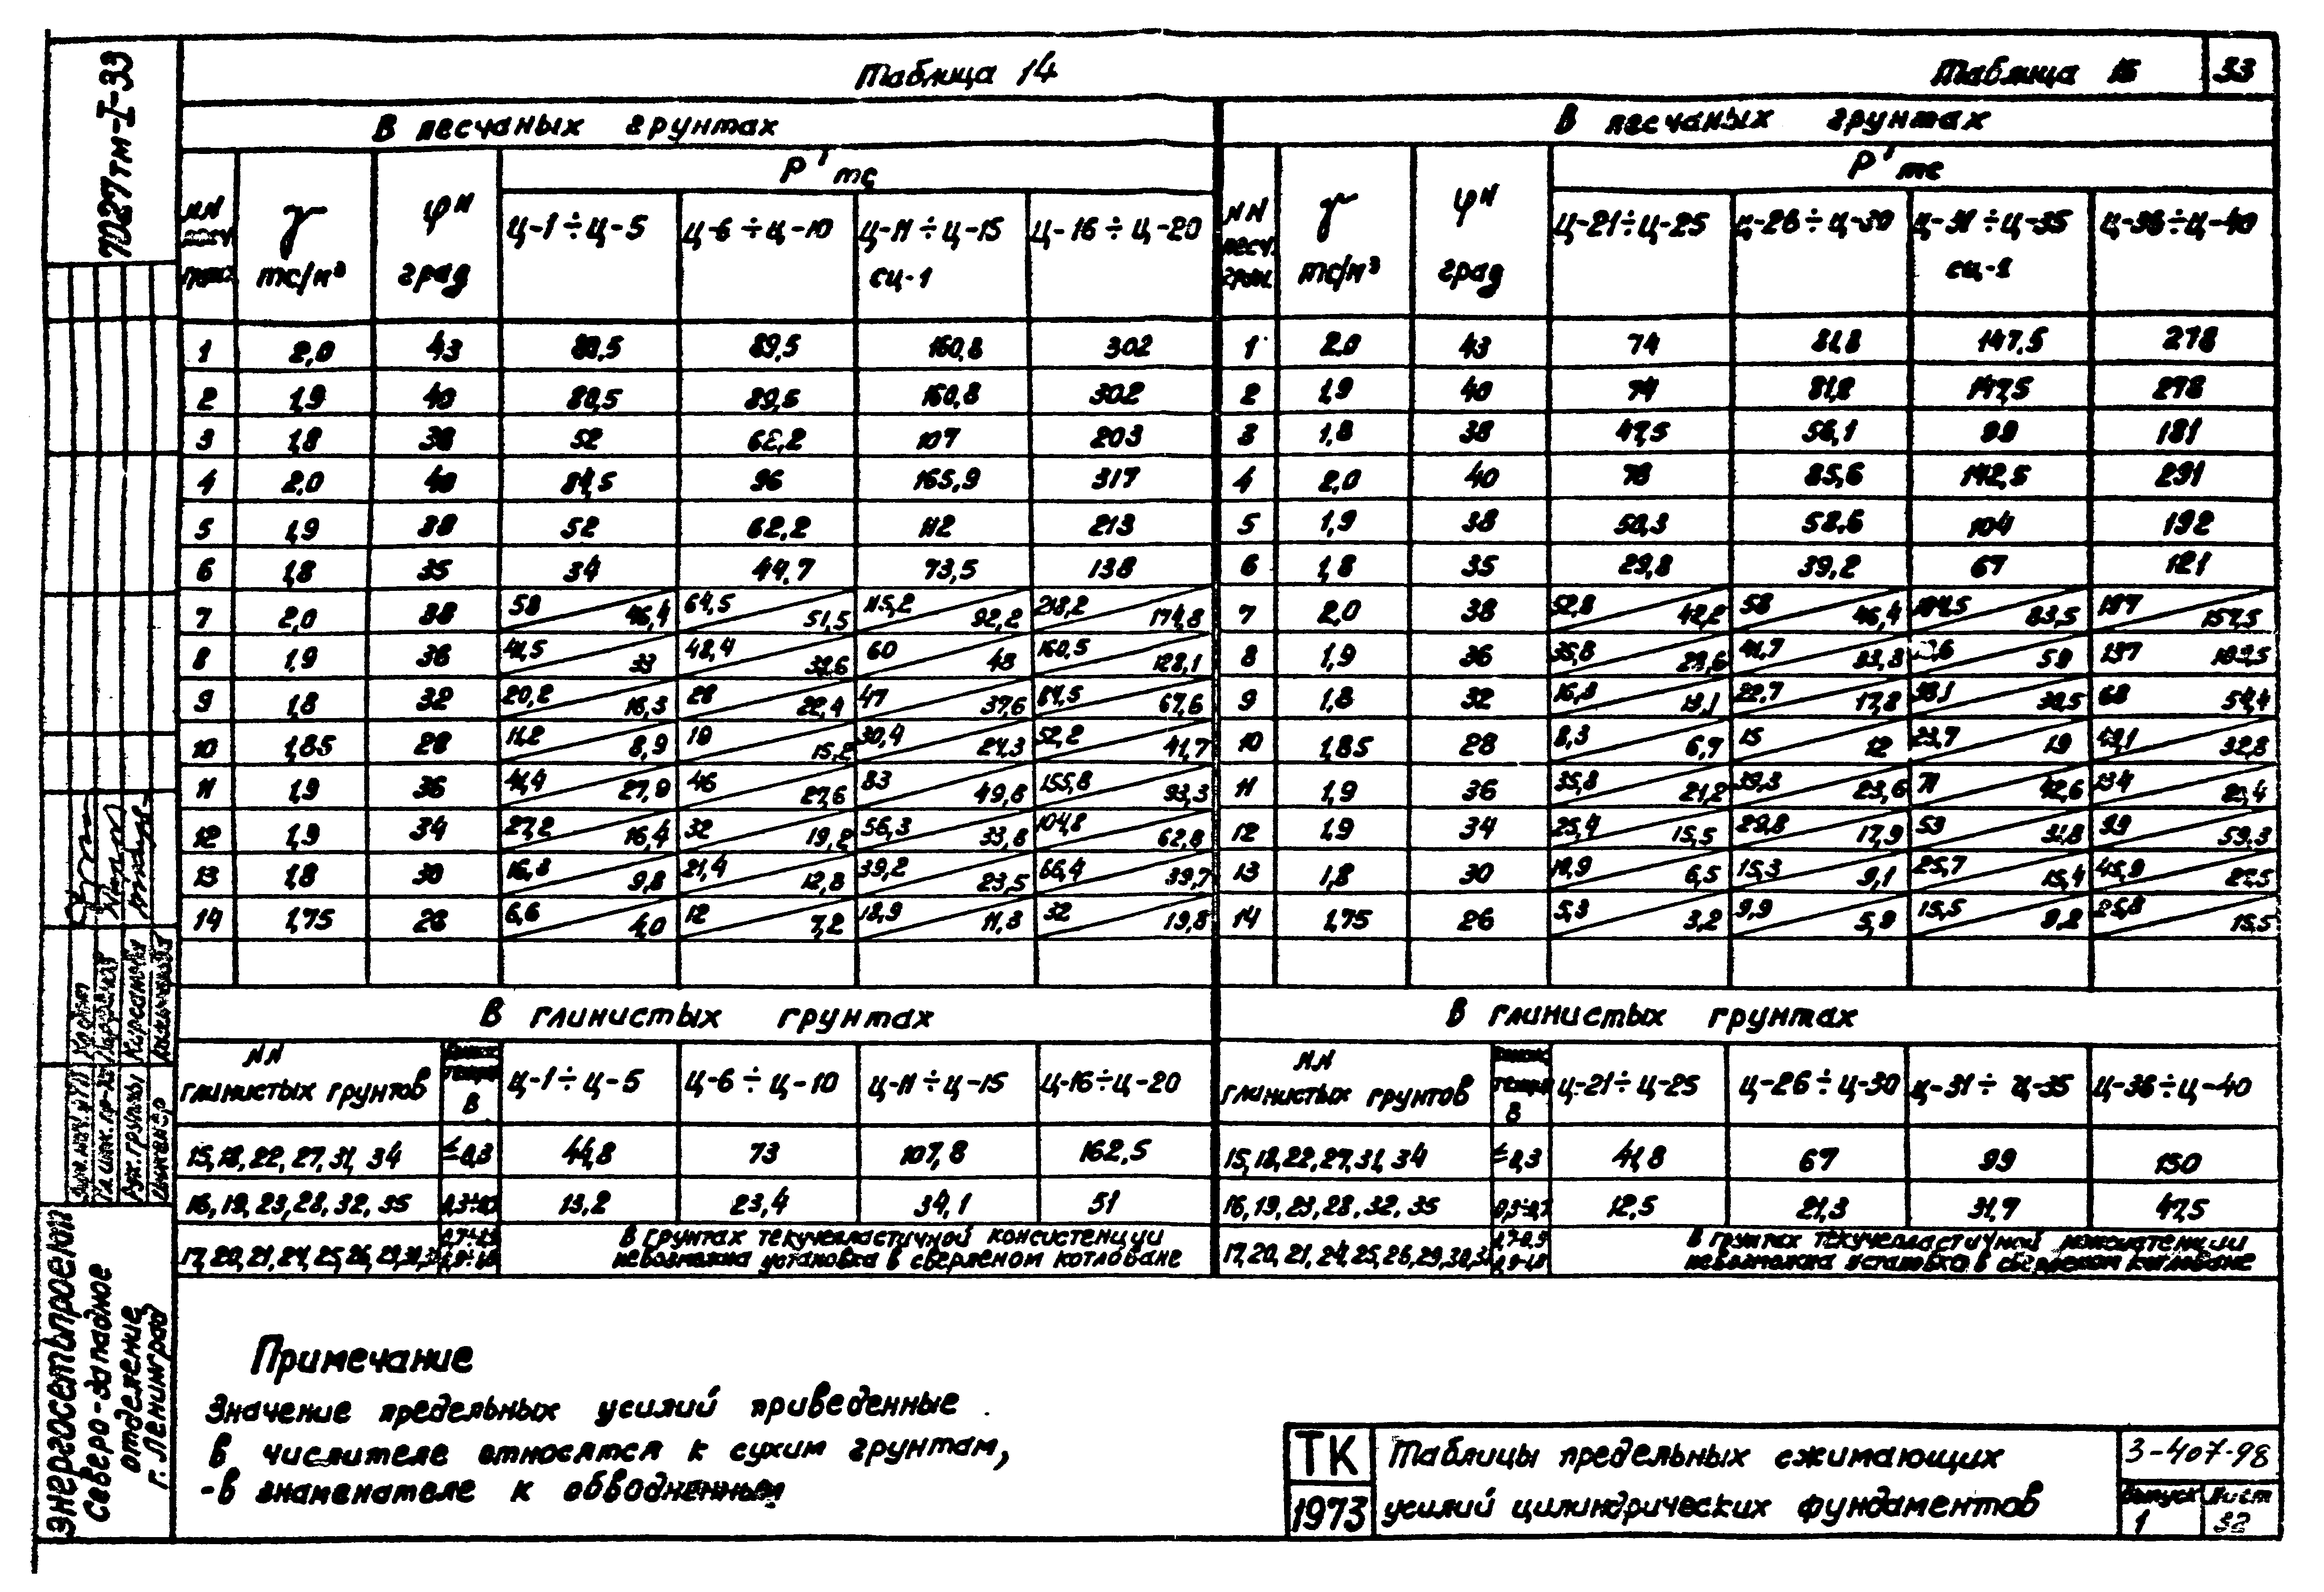 Таблица 14
Таблица 15
33
В песчаных грунтах
NN песч. грун. | γ тс/м³ | φᴺ град | P' тс
Ц-1÷Ц-5 | Ц-6÷Ц-10 | Ц-11÷Ц-15 СЦ-1 | Ц-16÷Ц-20
1 2,0 43 80,5 89,5 160,8 302
2 1,9 40 80,5 89,5 160,8 302
3 1,8 38 52 107 203
4 2,0 40 84,5 96 165,9 317
5 1,9 38 52 62,2 112 213
6 1,8 35 34 44,7 73,5 138
7 2,0 38 58/46,4 64,5/51,5 115,2/92,2 218,2/174,8
8 1,9 36 41,5/33 48,4/38,6 60/48 160,5/128,1
9 1,8 32 20,2/16,3 28/22,4 47/37,6 84,5/67,6
10 1,85 28 11,2/8,9 19/15,2 30,4/24,3 52,2/41,7
11 1,9 36 41,4/27,9 46/27,6 83/49,8 155,8/93,3
12 1,9 34 27,2/16,4 32/19,2 56,3/33,8 104,8/62,8
13 1,8 30 16,3/9,8 21,4/12,8 39,2/23,5 66,4/39,7
14 1,75 26 6,6/4,0 12/7,2 18,9/11,3 32/19,8
В глинистых грунтах
NN глинистых грунтов | В | Ц-1÷Ц-5 | Ц-6÷Ц-10 | Ц-11÷Ц-15 | Ц-16÷Ц-20
15,18,22,27,31,34 ≤0,3 44,8 73 107,8 162,5
16,19,23,28,32,35 13,2 23,4 34,1 51
17,20,21,24,25,26,29,30,
В грунтах текучепластичной консистенции
невозможна установка в сверленом котловане
В песчаных грунтах
NN песч. грун. | γ тс/м³ | φᴺ град | P' тс
Ц-21÷Ц-25 | Ц-26÷Ц-30 | Ц-31÷Ц-35 СЦ-2 | Ц-36÷Ц-40
1 2,0 43 74 81,8 147,5 278
2 1,9 40 74 81,8 147,5 278
3 1,8 38 47,5 56,1 99 181
4 2,0 40 78 85,6 142,5 291
5 1,9 38 50,3 58,6 104 192
6 1,8 35 29,8 39,2 67 121
7 2,0 38 52,8/42,2 58/46,4 104,5/83,5 197/157,5
8 1,9 36 35,8/28,6 41,7/33,3 59 137
9 1,8 32 16,3/13,1 22,7/17,8 38,1/30,5 68/54,4
10 1,85 28 8,3/6,7 15/12 23,7/19 41,1/32,8
11 1,9 36 35,8/21,2 39,3/23,6 71/42,6 134
12 1,9 34 25,4/15,5 29,8/17,9 53/31,8 99/59,3
13 1,8 30 10,9/6,5 15,3/9,1 25,7/15,4 45,9/27,5
14 1,75 26 5,3/3,2 9,9/5,9 15,5/9,2 25,8/15,5
В глинистых грунтах
NN глинистых грунтов | В | Ц-21÷Ц-25 | Ц-26÷Ц-30 | Ц-31÷Ц-35 | Ц-36÷Ц-40
15,18,22,27,31,34 ≤0,3 41,8 67 99 150
16,19,23,28,32,35 0,3÷0,7 12,5 21,3 31,7 47,5
17,20,21,24,25,26,29,30,
В грунтах текучепластичной консистенции
невозможна установка в сверленом котловане
Примечание
Значение предельных усилий приведенные
в числителе относятся к сухим грунтам,
-в знаменателе к обводненным
ТК
1973
Таблицы предельных сжимающих
усилий цилиндрических фундаментов
3-407-98
Выпуск 1
Лист 32
7027тм-I-33
Рук. группы
Инженер
Энергосетьпроект
Северо-западное
отделение
г. Ленинград